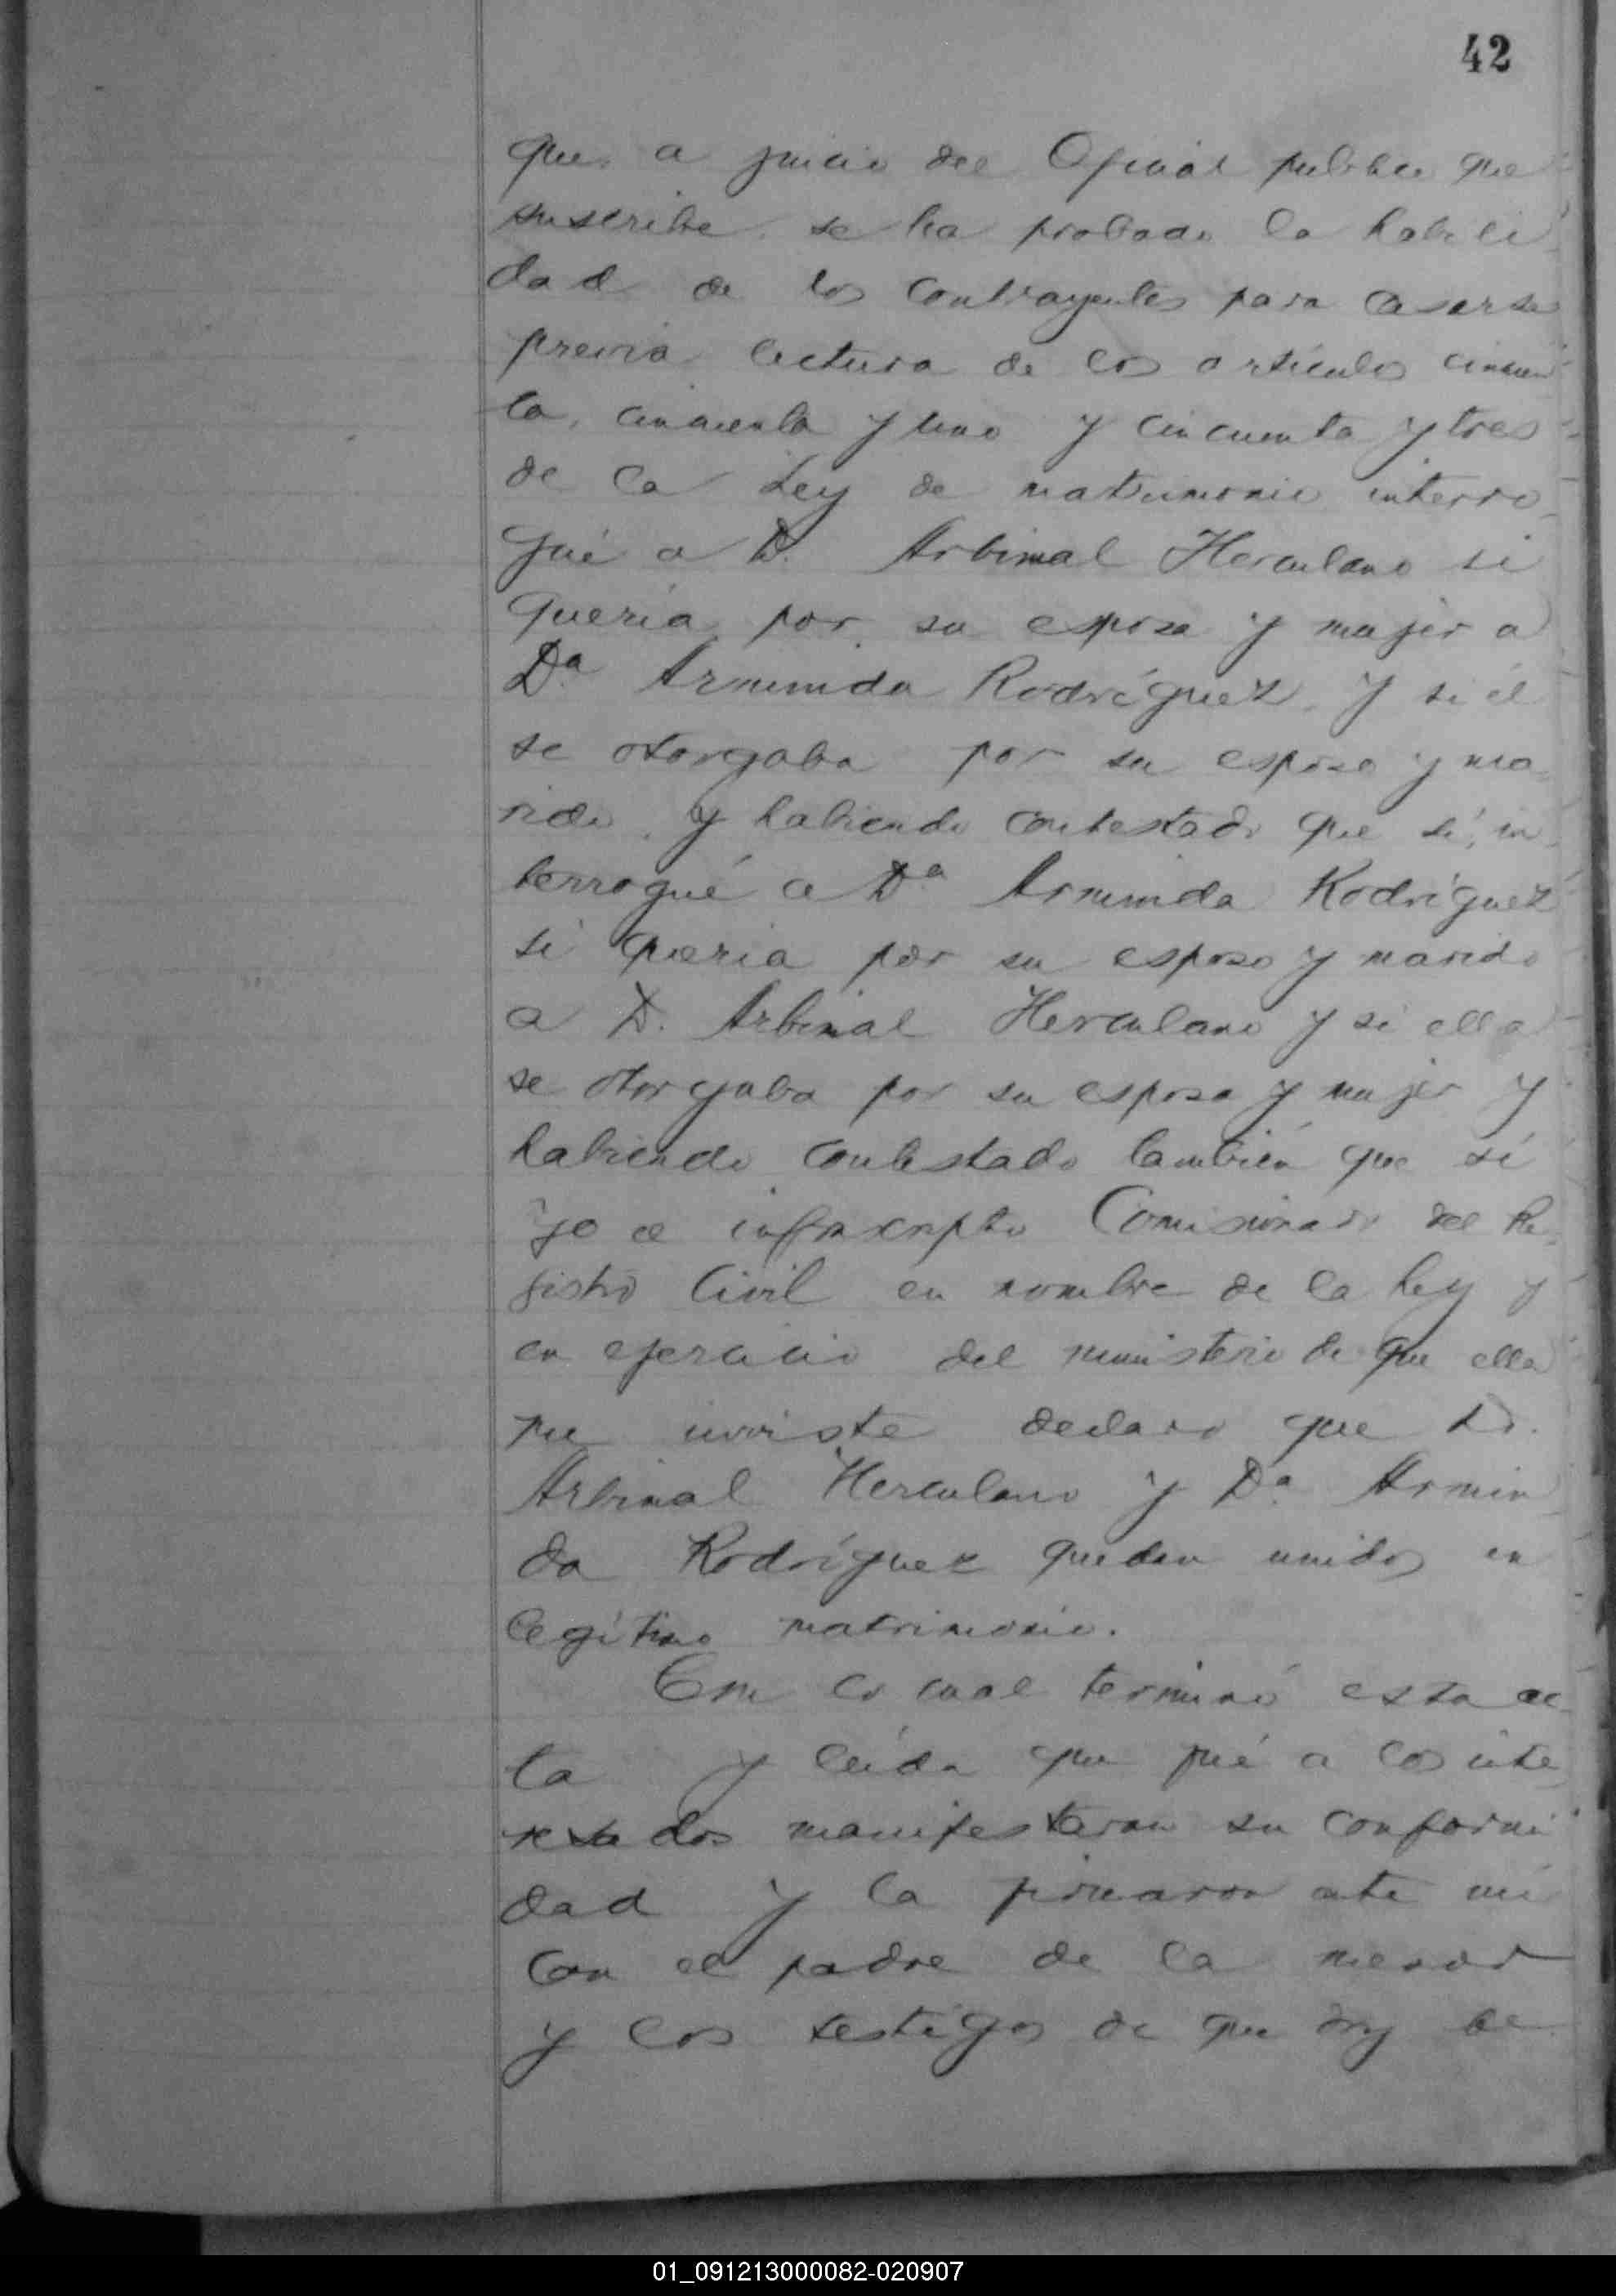 42
que a juicio del Oficial publico que
suscribe se ha probado la habili
dad de los contrayentes para casarse
previa lectura de los artículos cincuen
ta, cincuenta y uno y cincuenta y tres
de la Ley de matrimonio interro
gué a D. Arbimal Herculano si
quería por su esposa y mujer a
Da Arminda Rodríguez y si él
se otorgaba por su esposo y ma
rido, y habiendo contestado que sí, in
terrogué a Da Arminda Rodríguez
si queria por su esposo y marido
a D. Arbimal Herculano y si ella
se otorgaba por su esposa y mujer y
habiendo contestado también que sí
yo el infrascripto Comisionado del Re
gistro Civil en nombre de la Ley y
en ejercicio del ministerio de que ella
me inviste declaro que D.
Arbimal Herculano y Da Armin
da Rodríguez quedan unidos en
legítimo matrimonio.
Con lo cual terminó esta ac
ta y leída que fué a los inte
resados manifestaron su conformi
dad y la firmaron ante mí
con el padre de la menor
y los testigos de que doy fe
01_091213000082-020907